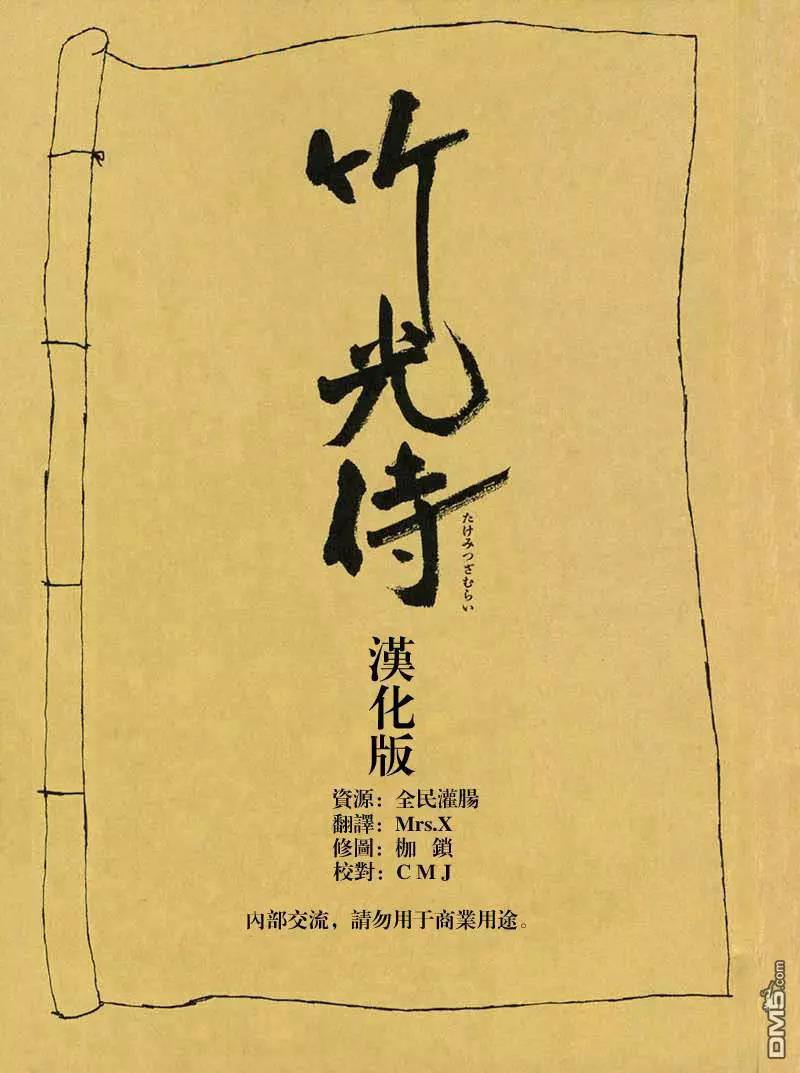 竹光侍
たけみつざむらい
漢化版
資源：全民灌腸
翻譯：Mrs.X
修圖：枷 鎖
校對：C M J
內部交流，請勿用于商業用途。
DM5.com